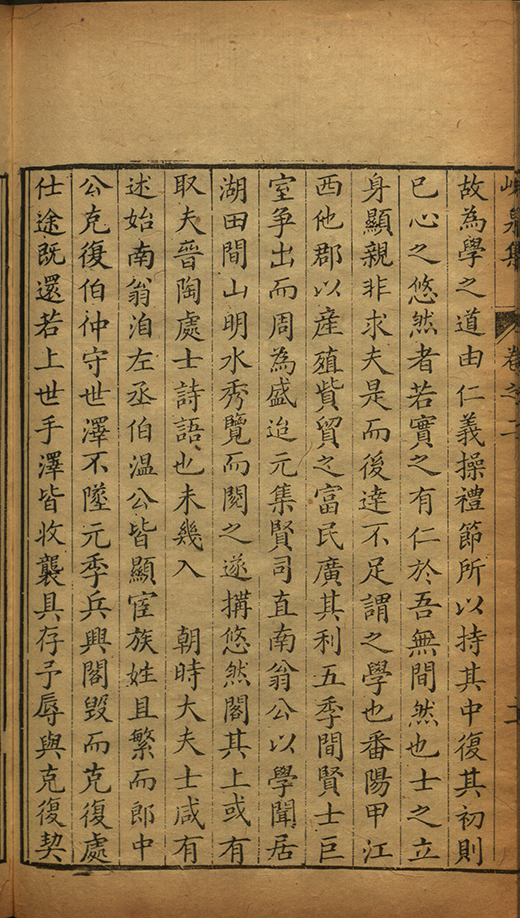 泉集 卷之二
故為學之道由仁義操禮節所以持其中復其初則
已心之悠然者若實之有仁於吾無間然也士之立
身顯親非求夫是而後達不足謂之學也番陽甲江
西他郡以産殖貲貿之富民廣其利五季間賢士巨
室争出而周為盛迨元集賢司直南翁公以學聞居
湖田間山明水秀覽而閱之遂搆悠然閣其上或有
取夫晉陶處士詩語也未幾入　朝時大夫士咸有
述始南翁洎左丞伯温公皆顯宦族姓且繁而郎中
公克復伯仲守世澤不墜元季兵興閣毀而克復處
仕途既還若上世手澤皆收襲具存予辱與克復契